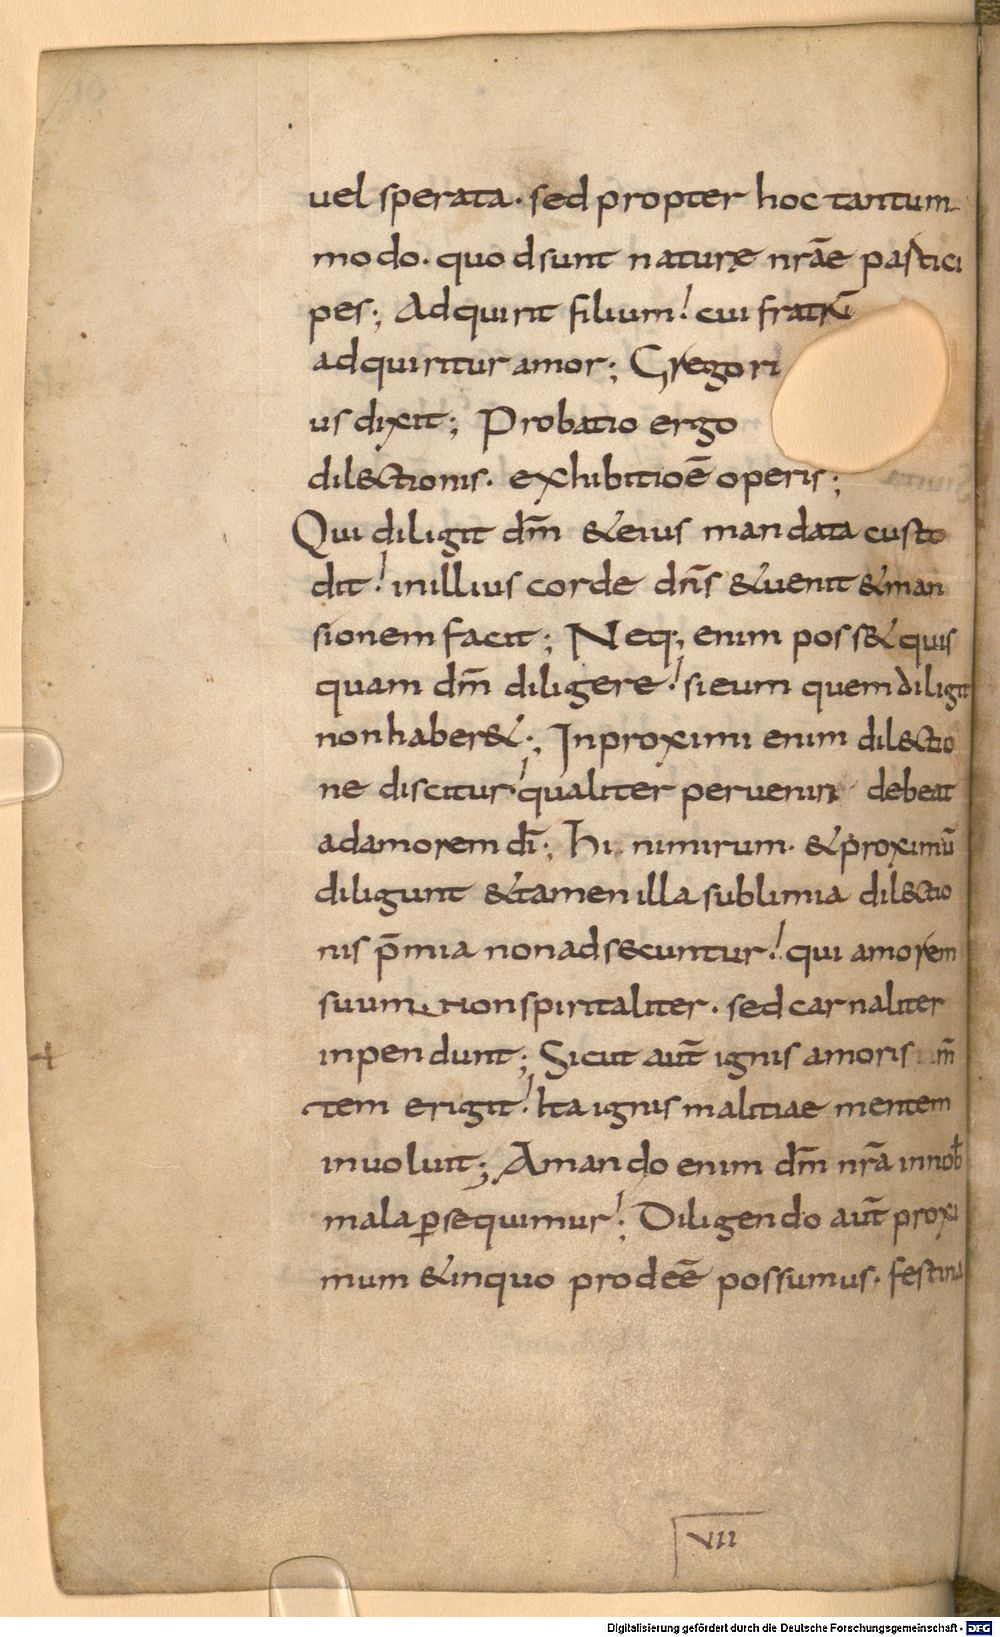 uel sperata· sed propter hoc tantum
modo· quod sunt naturę nr̄ae partici
pes; Adquirit filium! cui fratrū
adquiritur amor; Gregori
us dixit; Probatio ergo
dilectionis· exhibitio ē operis;
Qui diligit dm̄ & eius mandata custo
dit! in illius corde dn̄s & uenit & man
sionem facit; Neq; enim poss& quis
quam dm̄ diligere! si eum quem diligit
non haber&; In proximi enim dilectio
ne discitur! qualiter peruenir debeat
ad amorem dī; hi nimirum· & proximū
diligunt & tamen illa sublimia dilectio
nis p̄mia non adsecuntur! qui amorem
suum non spiritaliter· sed carnaliter
inpendunt; Sicut aut̄ ignis amoris
tem erigit! Ita ignis malitiae mentem
inuoluit; Amando enim dm̄ nr̄a in nob
mala ꝑsequimur!; Diligendo aut̄ proxi
mum & in quo prodeē possumus· festina
VII
Digitalisierung gefördert durch die Deutsche Forschungsgemeinschaft - DFG